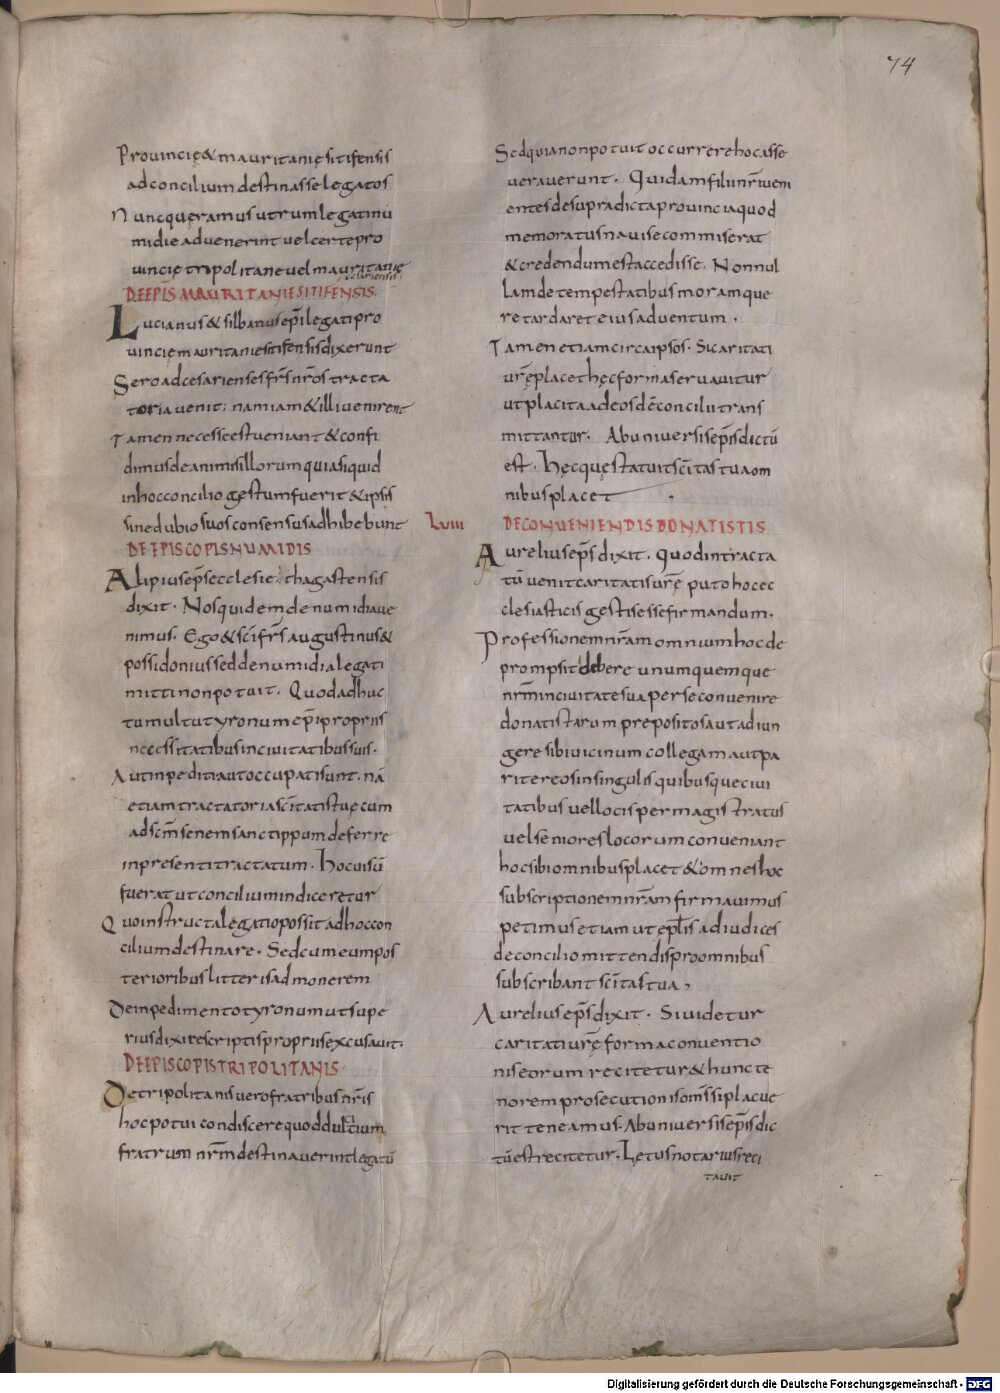 74
Prouincię & mauritanię sitifensis
ad concilium destinasse legatos
Nunc queramus utrum legati nu
midie aduenerint uel certe pro
uincię tripolitane uel mauritanię
DE EPIS MAURITANIE SITIFENSIS
Lucianus & silbanus epi legati pro
uincię mauritanie sitifensis dixerunt
Sero ad cesarienses frs nros tracta
toria uenit; nam iam & illi uenirent
Tamen necesse est ueniant & confi
dimus de animis illorum quia si quid
in hoc concilio gestum fuerit & ipsis
sine dubio suos consensus adhibebunt
DE EPISCOPIS NUMIDIS
Alipius eps ecclesię thagastensis
dixit. Nos quidem de numidia ue
nimus. Ego & sci frs augustinus &
possidonius sed de numidia legati
mitti non potuit. Quod adhuc
tumultu tyronum epi propriis
necessitatibus in ciuitatibus suis.
Aut inpediti aut occupati sunt. nā
etiam tractatoria scitatis tuę cum
ad scm senem sanctippum deferre
in presenti tractatum. hoc uisū
fuerat ut concilium indiceretur
Quo instructa legatio possit ad hoc con
cilium destinare. Sed cum eum pos
terioribus litteris admonerem
De inpedimento tyronum ut supe
rius dixi rescriptis propriis excusauit.
DE EPISCOPIS TRIPOLITANIS
De tripolitanis uero fratribus nris
hoc potui condiscere quod dulcitium
fratrum nrm destinauerint legatū
Sed quia non potuit occurrere hoc asse
uerauerunt. Quidam filii nri ueni
entes de supradicta prouincia quod
memoratus nauise commiserat
& credendum est accedisse. Nonnul
lam de tempestatibus moram que
retardaret eius aduentum.
Tamen etiam circa ipsos. Si caritati
urę placet hęc forma seruauitur
ut placita ad eos de concilii trans
mittantur. Ab uniuersis epis dictū
est. hęc que statuit scitas tua om
nibus placet
Lviii
DE CONUENIENDIS DONATISTIS
Aurelius eps dixit. Quod in tracta
tū uenit caritatis urę puto hoc ec
clesiasticis gestis esse firmandum.
Professionem nram omnium hoc de
prompsit debere unumquemque
nrm in ciuitate sua per se conuenire
donatistarum prepositos aut adiun
gere sibi uicinum collegam aut pa
riter eos in singulis quibusque ciui
tatibus uel locis per magistratus
uel seniores locorum conueniant
hoc si bi omnibus placet & omnes hoc
subscriptionem nram firmauimus
petimus etiam ut eptlis ad iudices
de concilio mittendis pro omnibus
subscribant scitas tua,
Aurelius eps dixit. Si uidetur
caritati urę forma conuentio
nis eorum recitetur & hunc te
norem prosecutionis oms si placue
rit teneamus. Ab uniuersis epis dic
tū est recitetur. Letus notarius reci
tauit
Digitalisierung gefördert durch die Deutsche Forschungsgemeinschaft - DFG